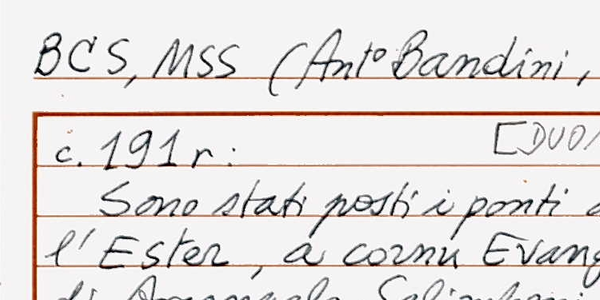 BCS, MSS (Antº Bandini,
c. 191r: [DUO
Sono stati posti i ponti a
l'Ester, a cornu Evang
di